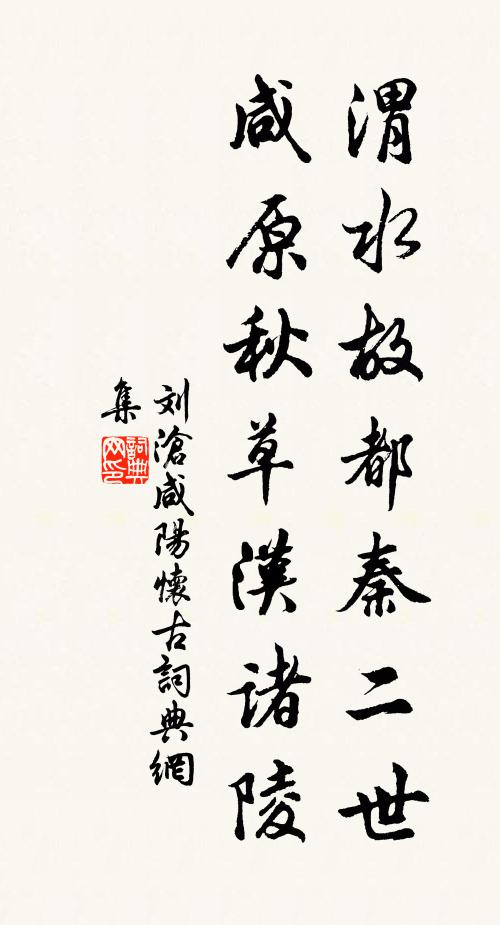 渭水故都秦二世
咸原秋草漢諸陵
刘滄咸陽懷古詞典網
集
詞典
网印